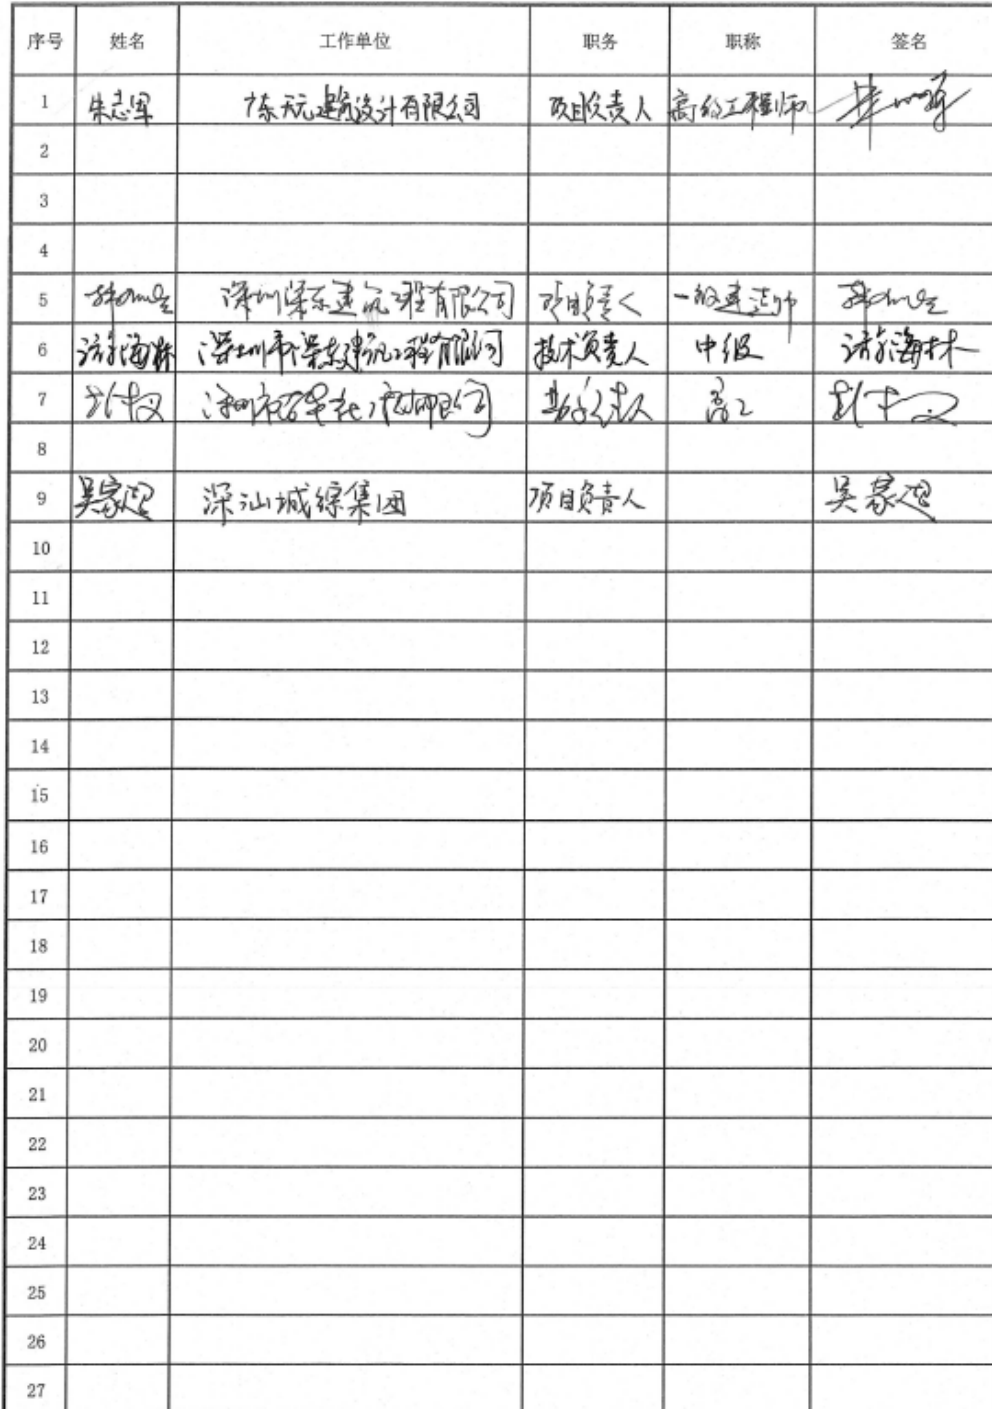 序号 姓名 工作单位 职务 职称 签名
1 朱志军 广东天元建筑设计有限公司 项目负责人 高级工程师
2
3
4
5 有限公司 项目负责人 一级建造师
6 海林 深圳市深东建筑工程有限公司 技术负责人 中级 海林
7 高工
8
9 吴家超 深汕城综集团 项目负责人 吴家超
10
11
12
13
14
15
16
17
18
19
20
21
22
23
24
25
26
27